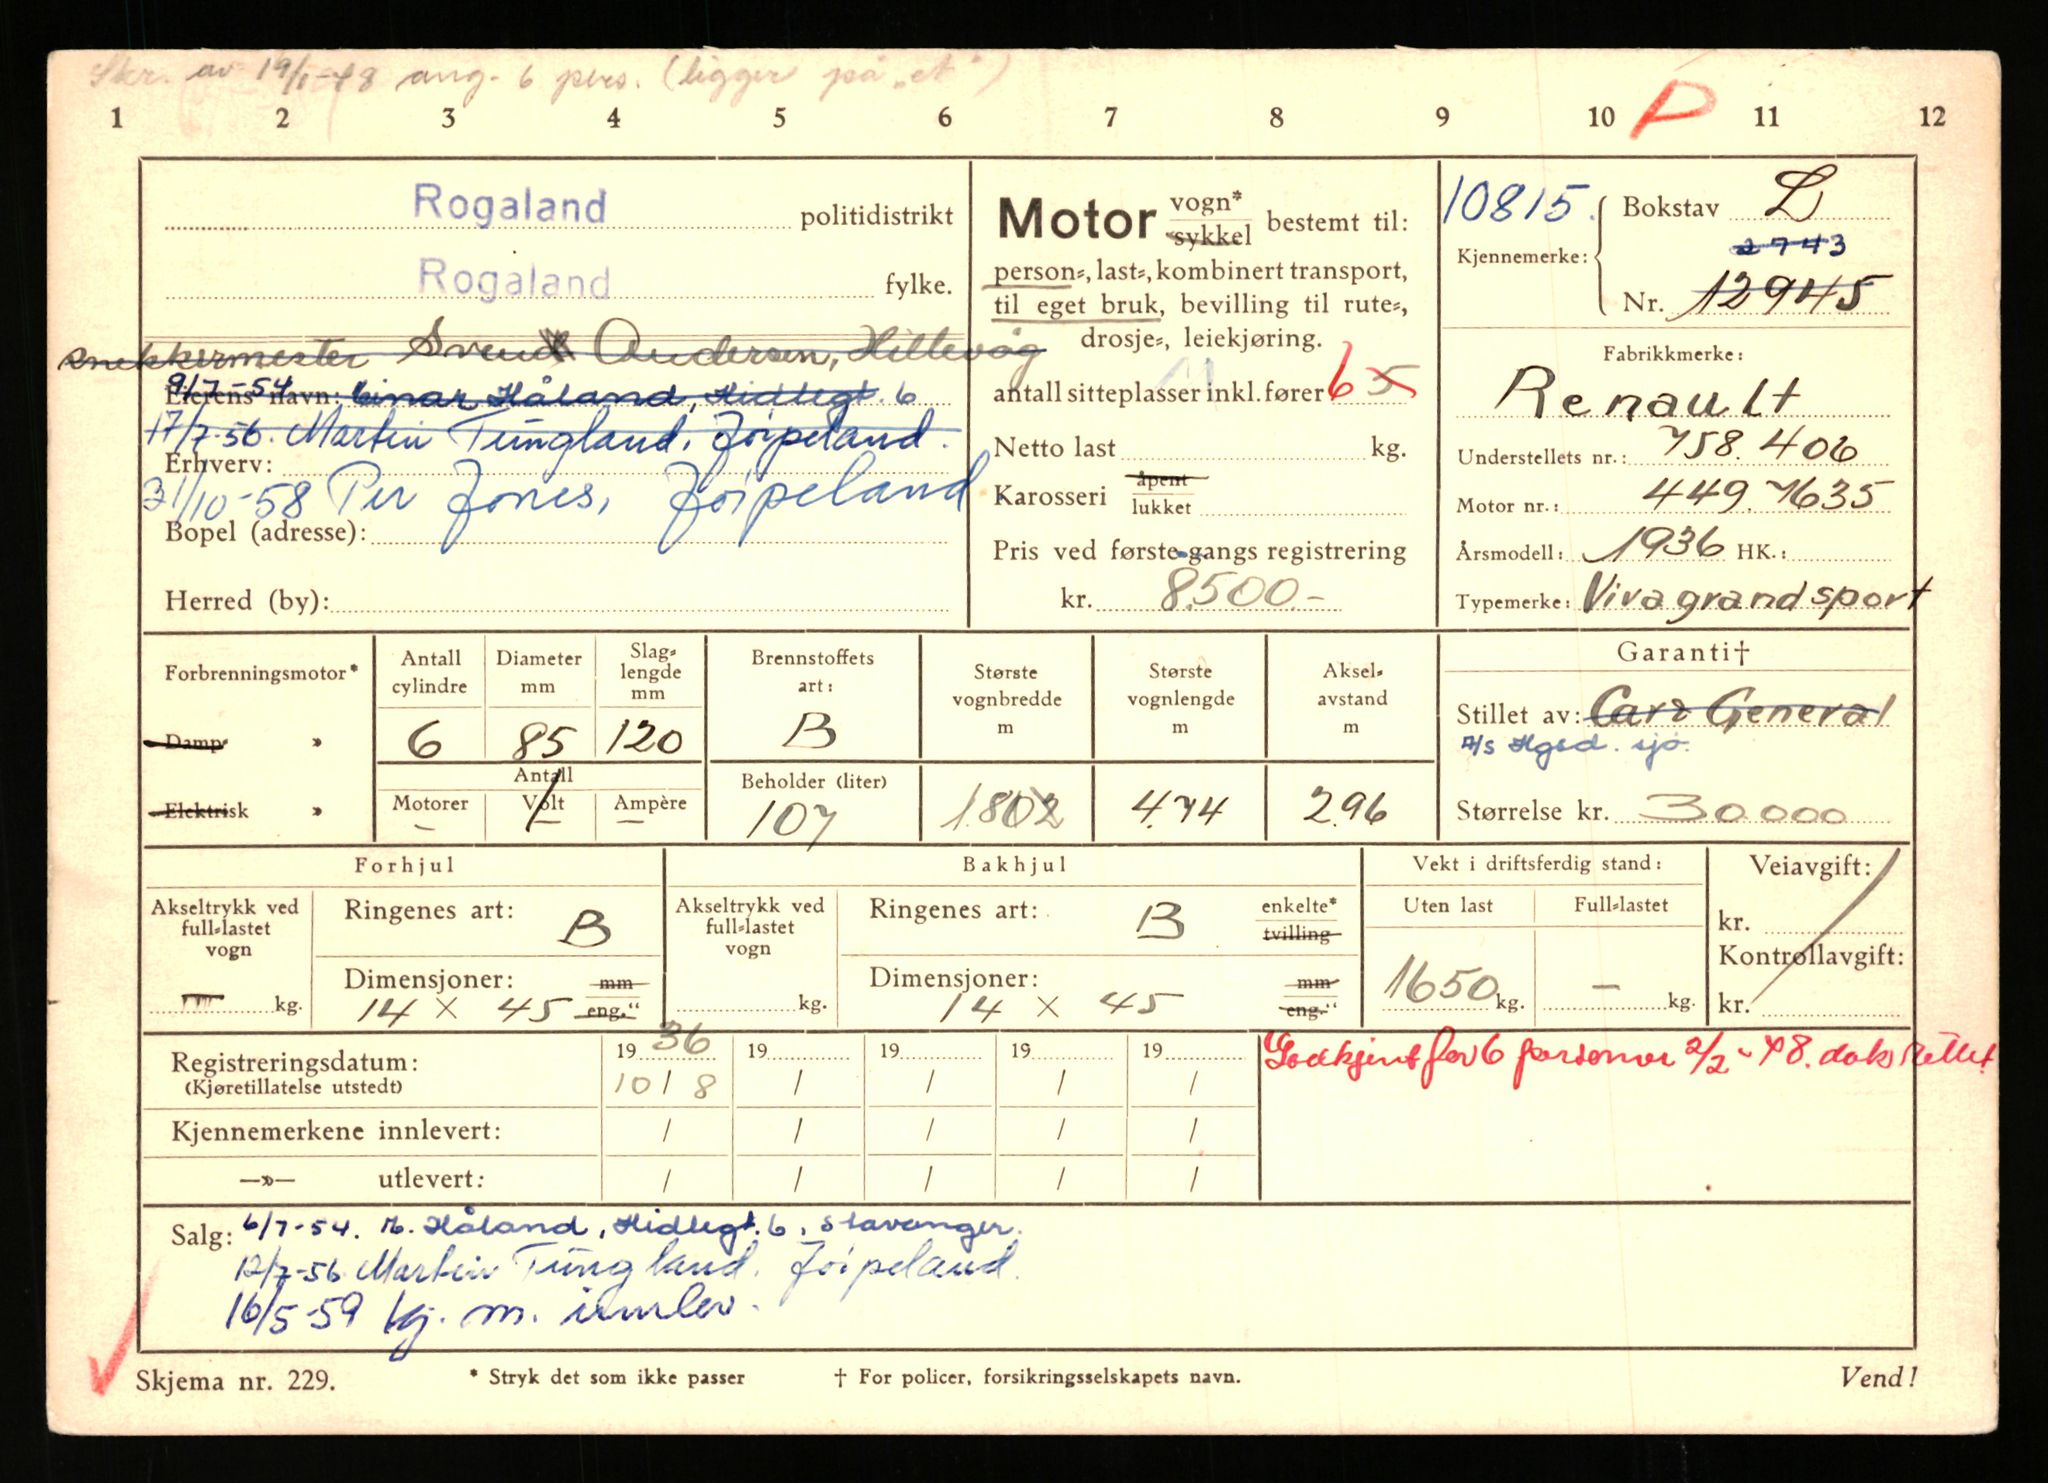 Skr. av 19/1-48 ang. 6 pers. (ligger på "et")
1 2 3 4 5 6 7 8 9 10 P 11 12
Rogaland politidistrikt
Rogaland fylke.
snekkermester Svend Andersen, Hillevåg
9/7-54
Eierens navn: Einar Håland, Hidlegt. 6
17/7-56. Martin Tungland, Jørpeland.
Erhverv:
31/10-58 Per Jones, Jørpeland
Bopel (adresse):
Herred (by):
Motor vogn* sykkel bestemt til:
person-, last-, kombinert transport,
til eget bruk, bevilling til rute-,
drosje-, leiekjøring.
antall sitteplasser inkl. fører 6 5
Netto last kg.
Karosseri åpent lukket
Pris ved første gangs registrering
kr. 8.500.-
10815.
Bokstav L
Kjennemerke:
2743
Nr. 12945
Fabrikkmerke:
Renault
Understellets nr.: 758.406
Motor nr.: 449.7635
Årsmodell: 1936 HK.:
Typemerke: Viva grand sport
Forbrenningsmotor*
Damp »
Elektrisk »
Antall cylindre
6
Diameter mm
85
Slaglengde mm
120
Antall
Motorer –
Volt –
Ampère –
Brennstoffets art:
B
Beholder (liter)
107
Største vognbredde m
1.802
Største vognlengde m
4.74
Akselavstand m
2.96
Garanti†
Stillet av: Car & General
A/S Hgsd. sjø.
Størrelse kr. 30.000
Forhjul
Akseltrykk ved full-lastet vogn
kg.
Ringenes art: B
Dimensjoner: mm
14 x 45 eng."
Bakhjul
Akseltrykk ved full-lastet vogn
kg.
Ringenes art: B enkelte* tvilling
Dimensjoner: mm
14 x 45 eng."
Vekt i driftsferdig stand:
Uten last
1650 kg.
Full-lastet
– kg.
Veiavgift:
kr.
Kontrollavgift:
kr.
Registreringsdatum:
(Kjøretillatelse utstedt)
19 36 19 19 19 19
10 / 8 / / / /
Kjennemerkene innlevert: / / / / /
—»— utlevert: / / / / /
Godkjent for 6 personer 2/2-48.
Salg: 6/7-54. Håland, Hidlegt. 6, Stavanger.
12/7-56 Martin Tungland. Jørpeland.
16/5-59 kj. m. innlev.
Skjema nr. 229.
* Stryk det som ikke passer
† For policer, forsikringsselskapets navn.
Vend!